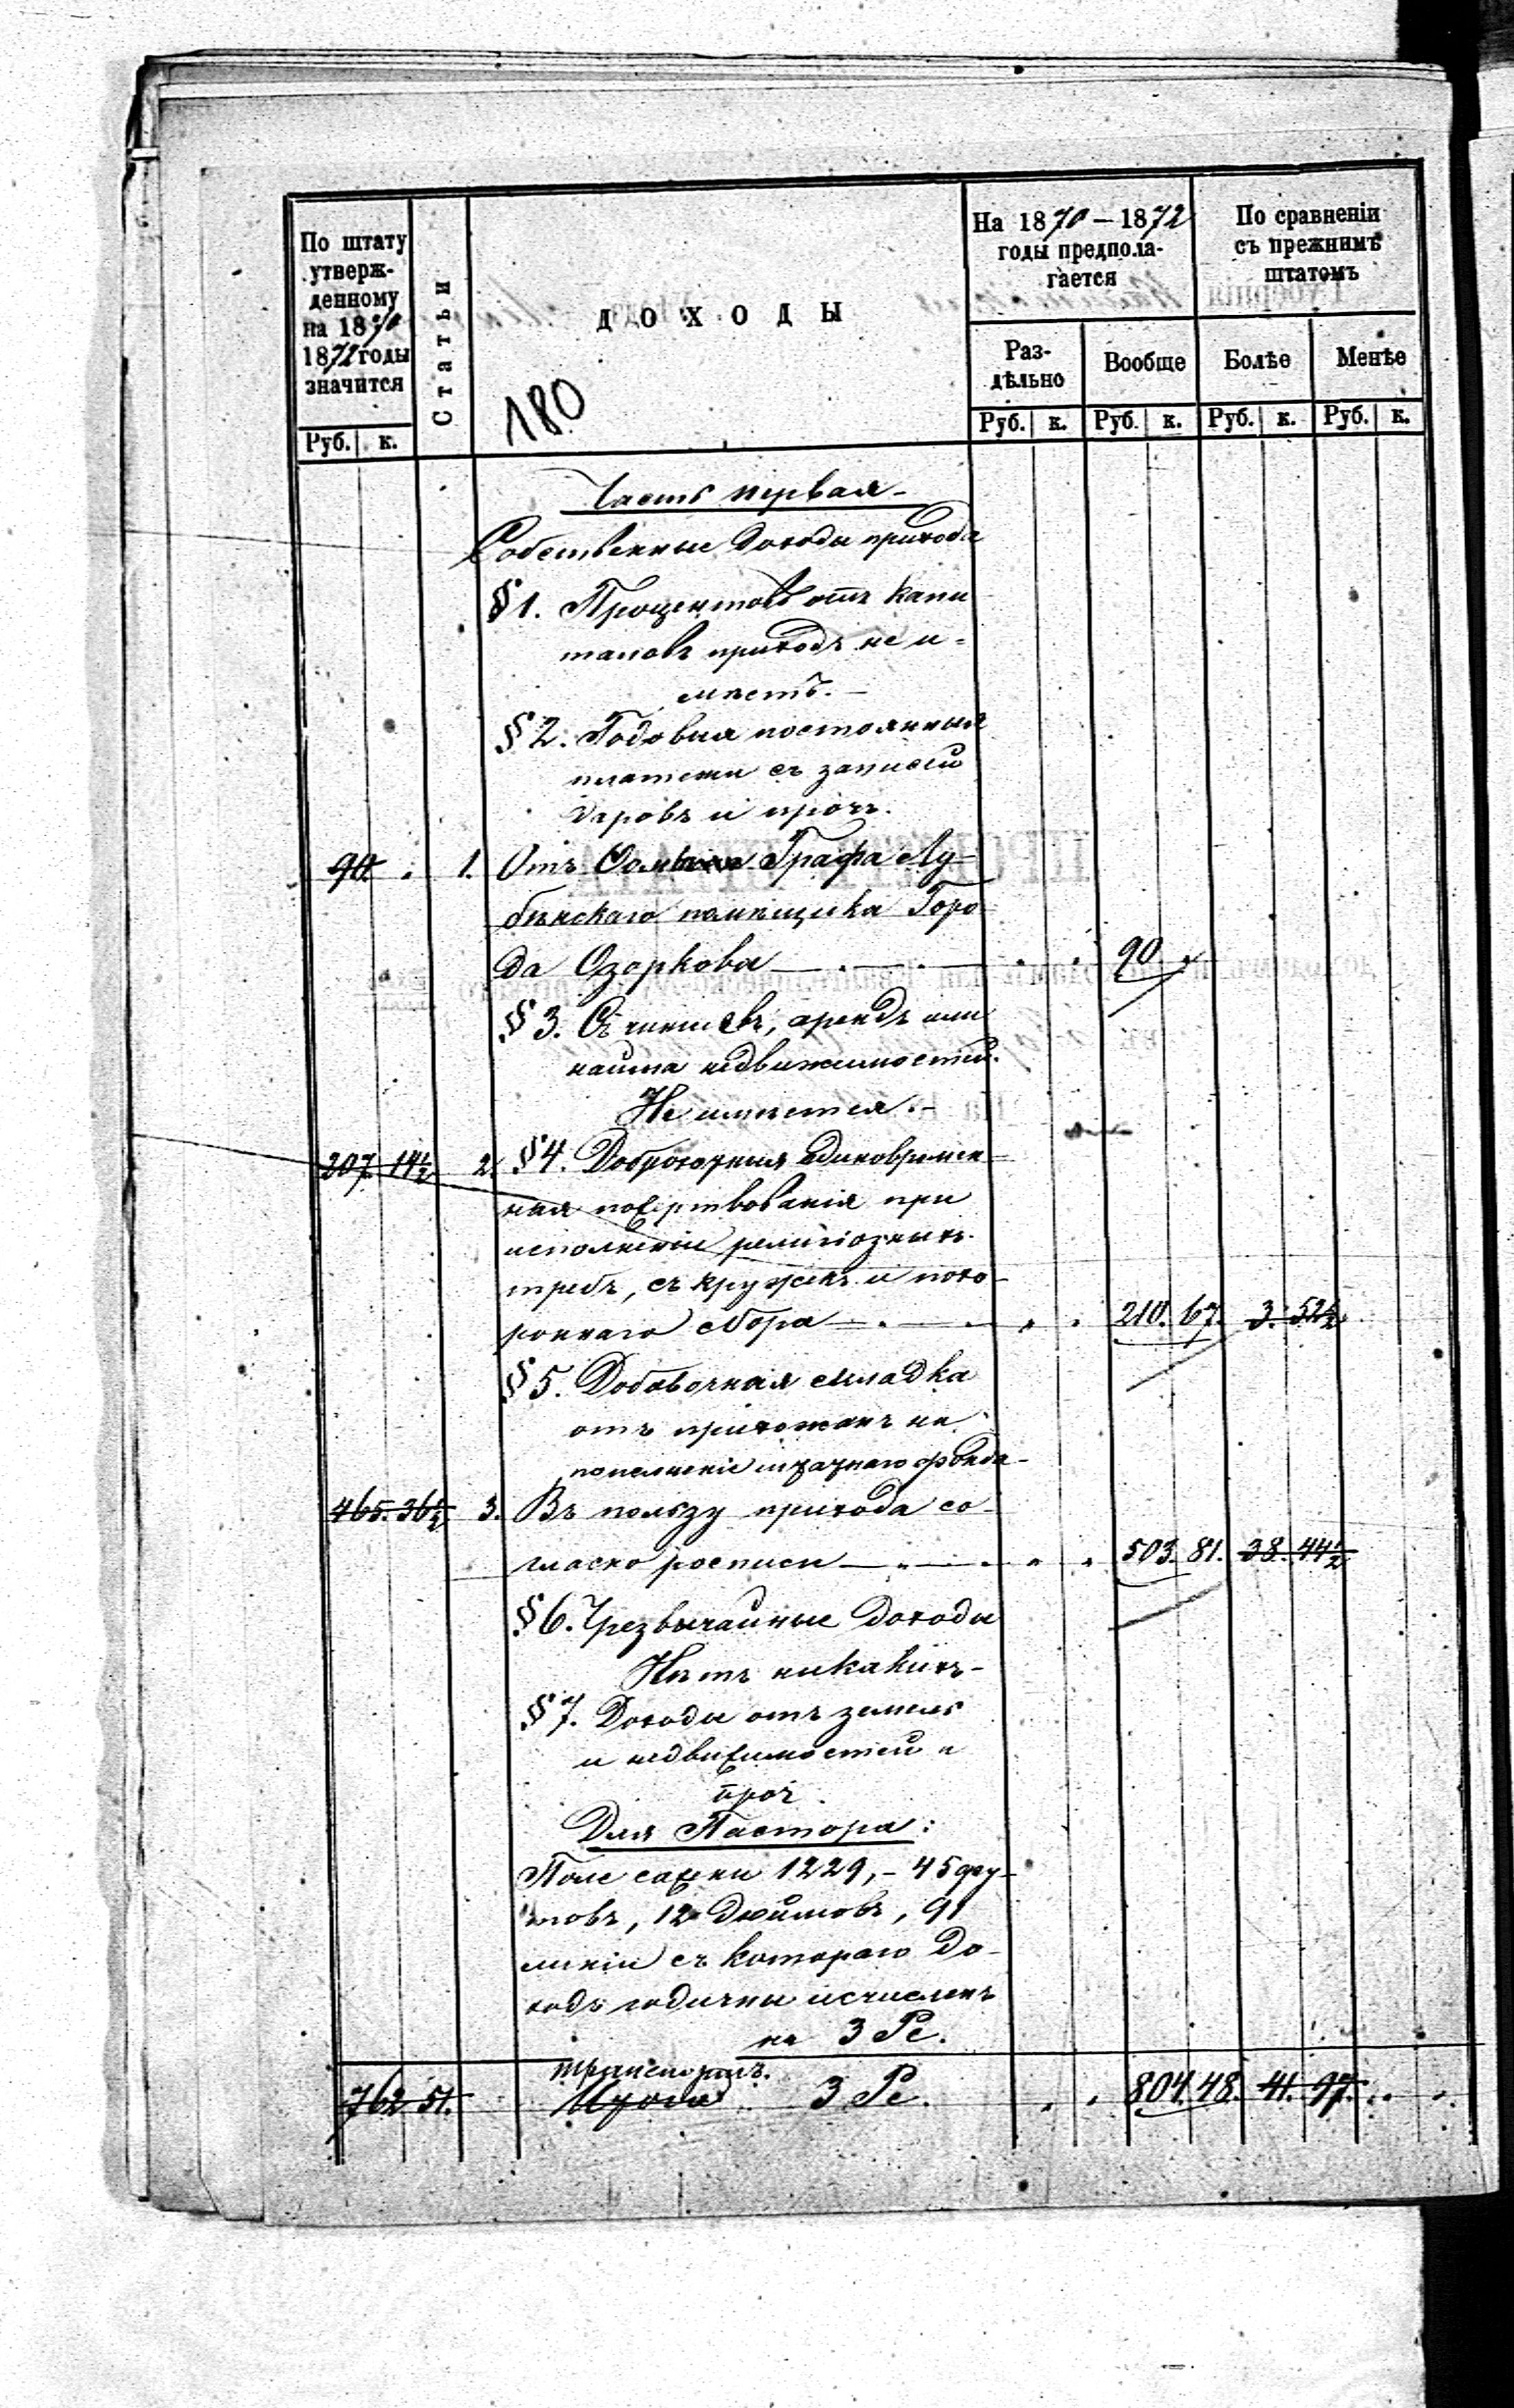 По штату
утверж-
денному
на 1870
1872 годы
значится
Руб. к.
Статьи
ДОХОДЫ
180
На 1870 – 1872
годы предпола-
гается
По сравненіи
съ прежнимъ
штатомъ
Раз-
дѣльно
Вообще
Болѣе
Менѣе
Руб. к. Руб. к. Руб. к. Руб. к.
Часть первая
Собственные доходы прихода
§ 1. Процентовъ отъ капи
таловъ приходъ не и-
мѣетъ.
§ 2. Годовыя постоянныя
платежи съ записей
даровъ и проч.
90. 1. Отъ Графа Лу-
бѣнскаго помѣщика Горо
да Озоркова 90
§ 3. Съ чиншевъ, арендъ или
найма недвижимостей.
Не имѣется.
207. 14½ 2. § 4. Доброхотныя единовремен-
ныя пожертвованія при
исполненіи религіозныхъ
требъ, съ кружекъ и похо-
роннаго сбора 210. 67. 3. 52½
§ 5. Добавочная складка
отъ прихожанъ на
пополненіе штатнаго фонда
465. 36½ 3. Въ пользу прихода со-
гласно росписи 503. 81. 38. 44½
§ 6. Чрезвычайные доходы
Нѣтъ никакихъ
§ 7. Доходы отъ земель
и недвижимостей и
проч.
Для Пастора:
Поле сажни 1229, – 45 фу-
товъ, 12 дюймовъ, 91
линіи съ котораго до-
ходъ годичны исчисленъ
на 3 Рс.
транспортъ.
762 51. Итого 3 Рс. 804. 48. 41. 97.